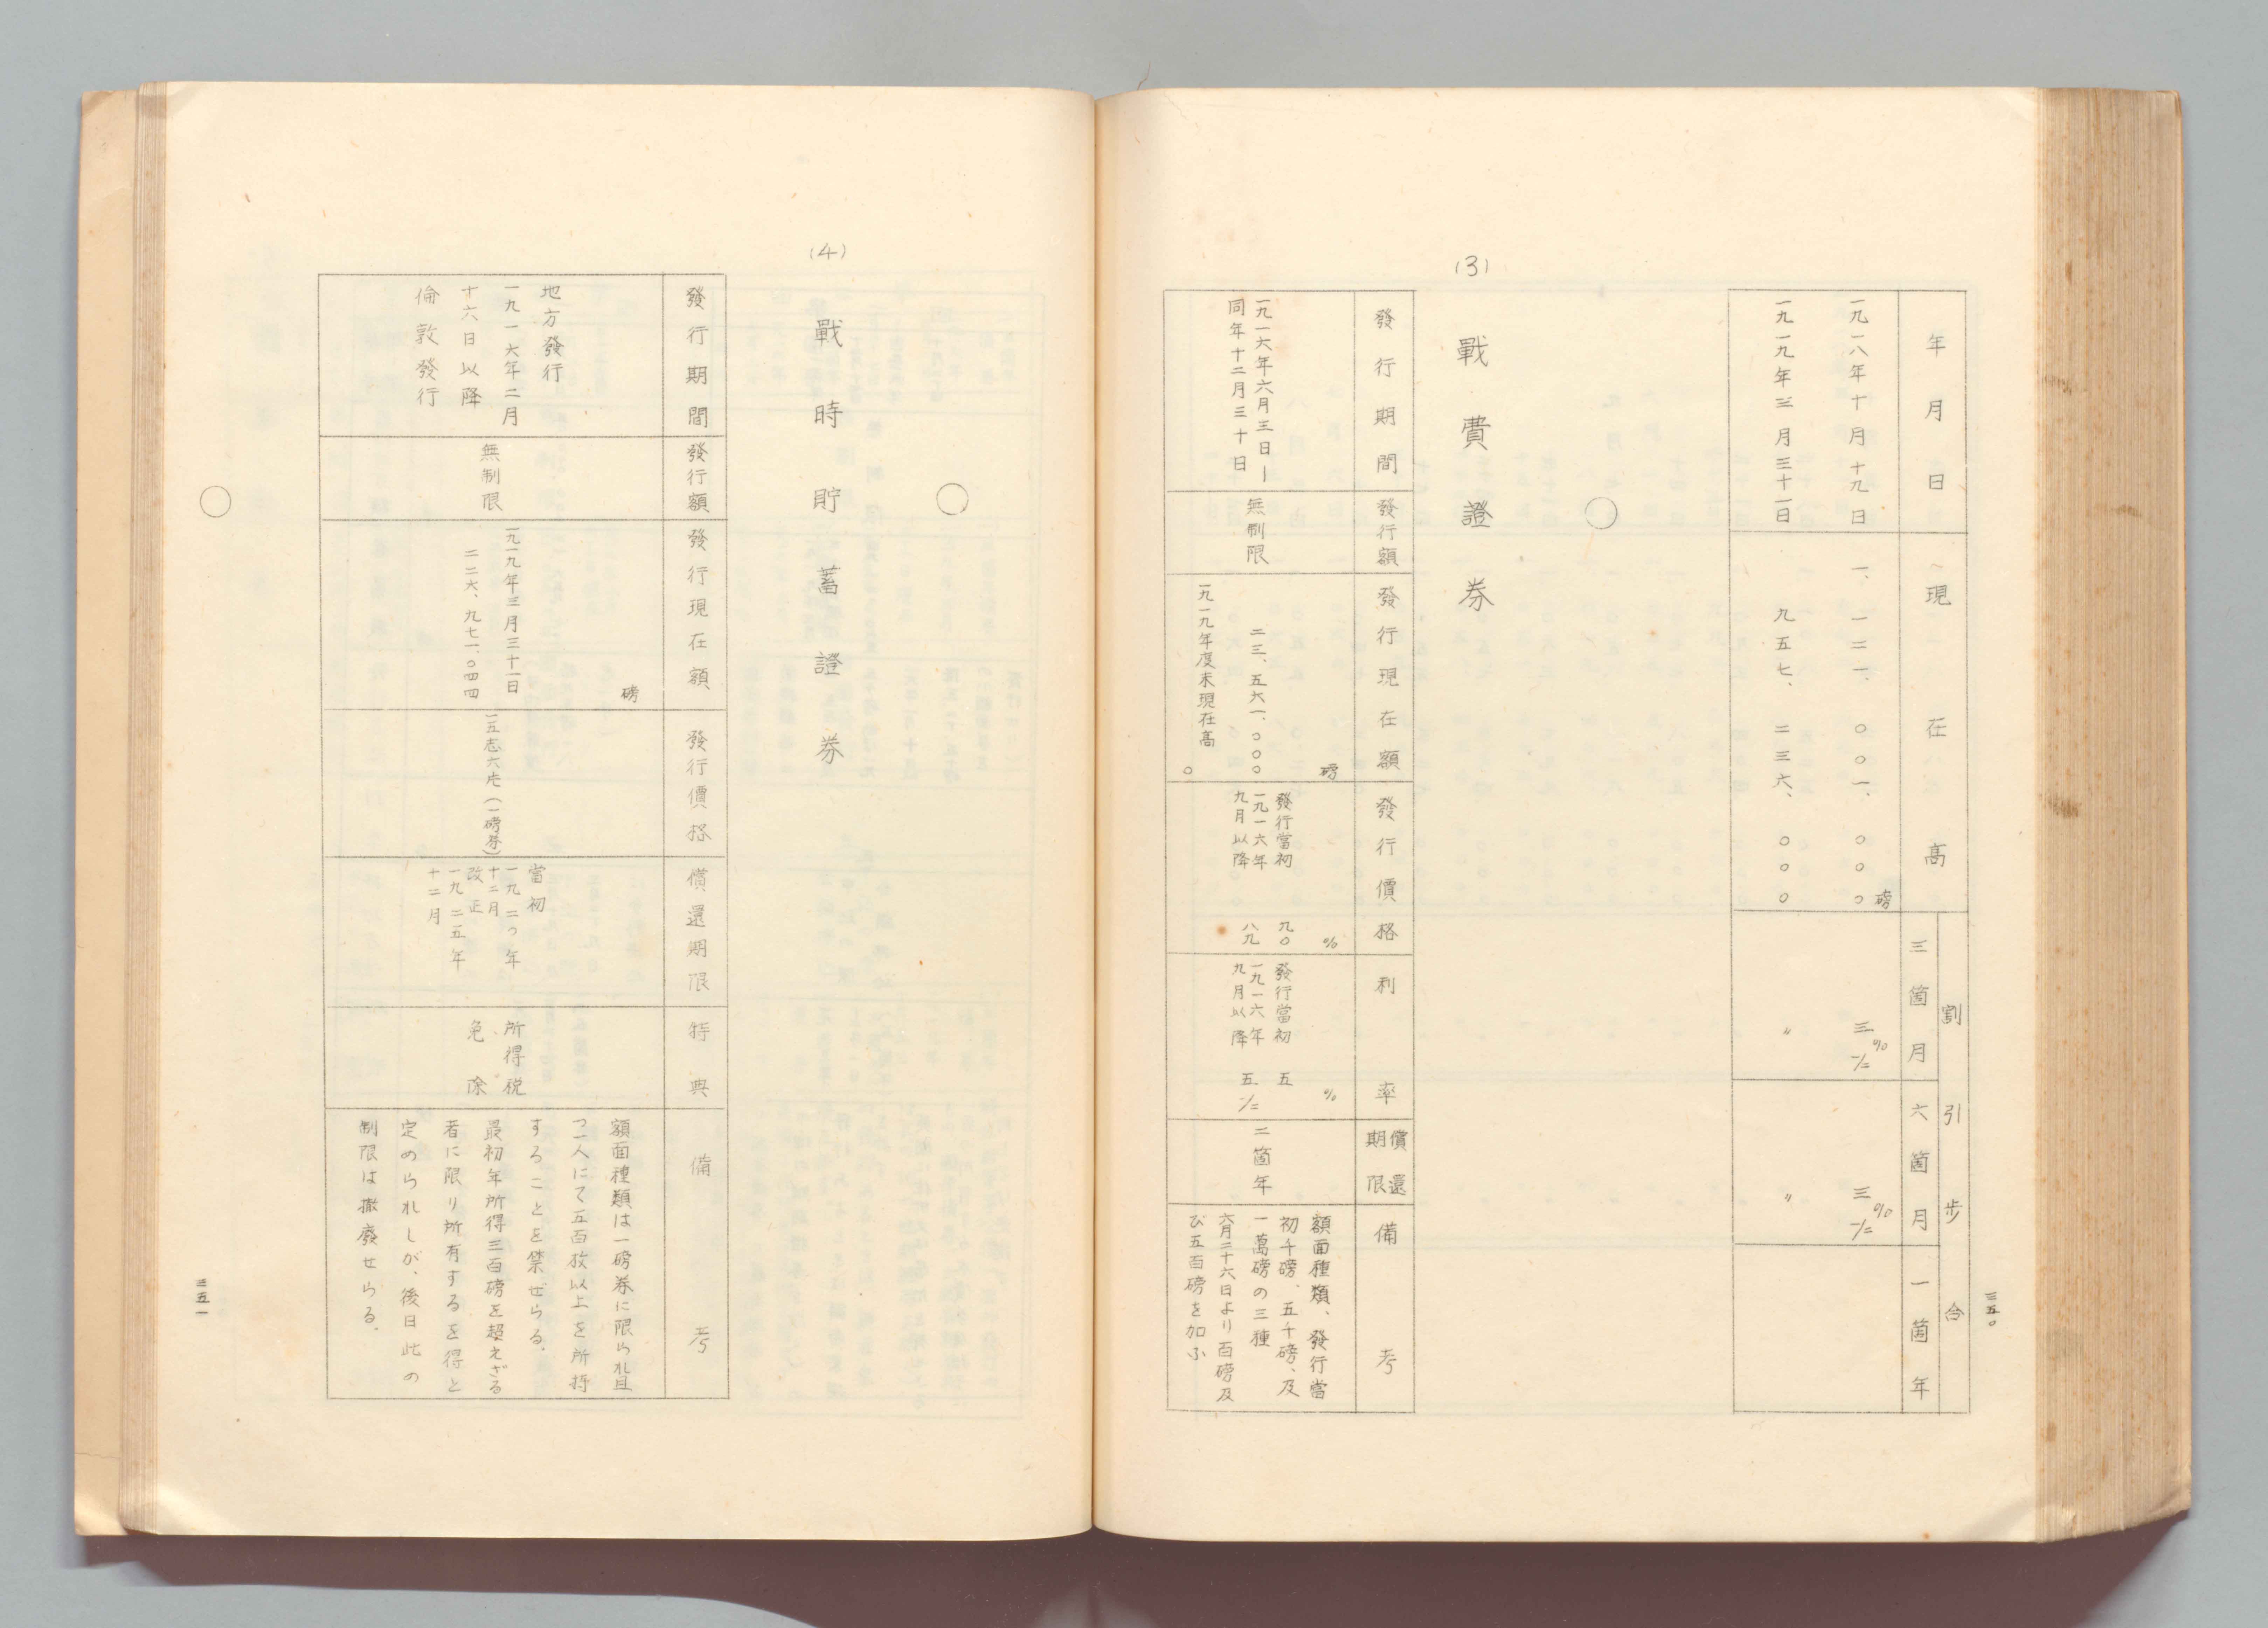 三五〇
年月日
現在高
割引歩合
三箇月
六箇月
一箇年
磅
一九一八年十月十九日
一、一二一、〇〇一、〇〇〇
三 1/2 %
三 1/2 %
一九一九年三月三十一日
九五七、二三六、〇〇〇
〃
〃
(3)
戰費證券
發行期間
發行額
發行現在額
發行價格
利率
償還期限
備考
一九一六年六月三日—
同年十二月三十日
無制限
磅
二三、五六一、〇〇〇
一九一九年度末現在高
〇
%
發行當初 九〇
一九一六年
九月以降 八九
%
發行當初 五
一九一六年
九月以降 五 1/2
二箇年
額面種類、發行當
初千磅、五千磅、及
一萬磅の三種
六月二十六日より百磅及
び五百磅を加ふ
(4)
戰時貯蓄證券
發行期間
發行額
發行現在額
發行價格
償還期限
特典
備考
地方發行
一九一六年二月
十六日以降
倫敦發行
無制限
磅
一九一九年三月三十一日
二二六、九七一、〇四四
一五志六片(一磅券)
當初
一九二〇年
十二月
改正
一九二五年
十二月
所得税
免除
額面種類は一磅券に限られ且
つ一人にて五百枚以上を所持
することを禁ぜらる.
最初年所得三百磅を超えざる
者に限り所有するを得と
定のられしが、後日此の
制限は撤廢せらる.
三五一